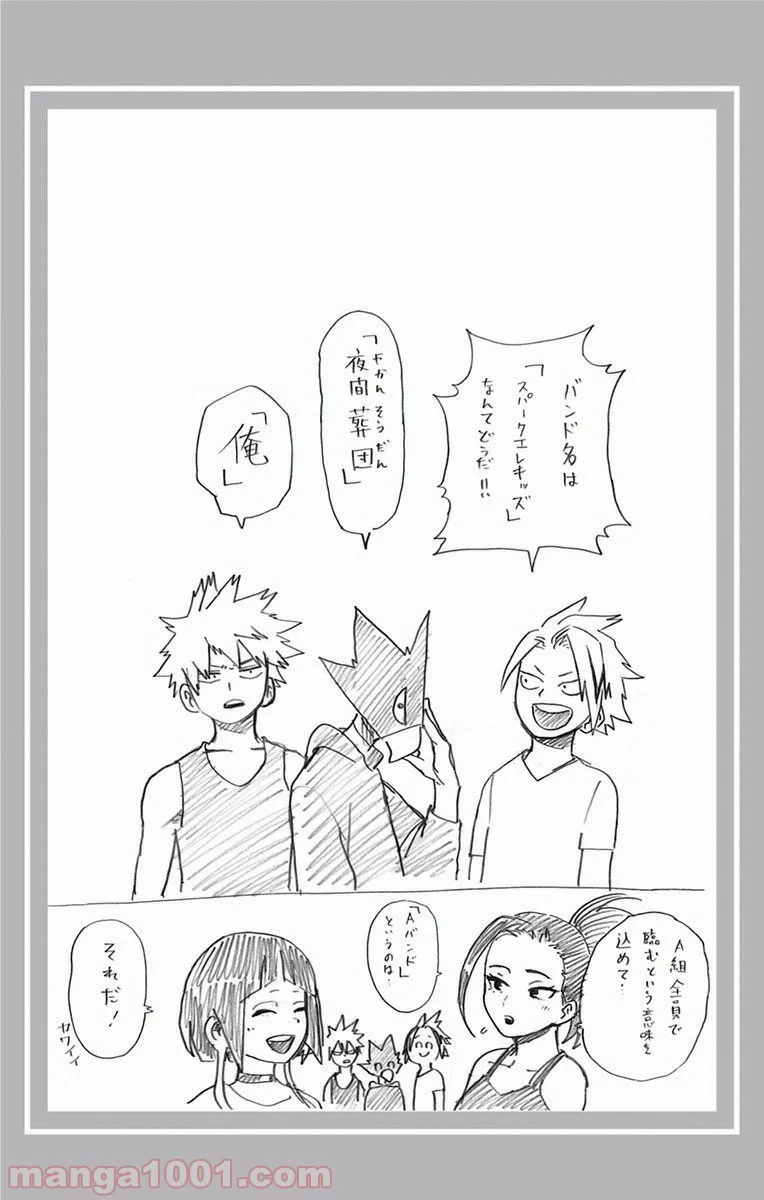 バンド名は
「スパークエレキッズ」
なんてどうだ!!
「夜間葬団」
やかんそうだん
「俺」
A組全員で
臨むという意味を
込めて…
「Aバンド」
というのは…
それだ!
カワイイ
manga1001.com